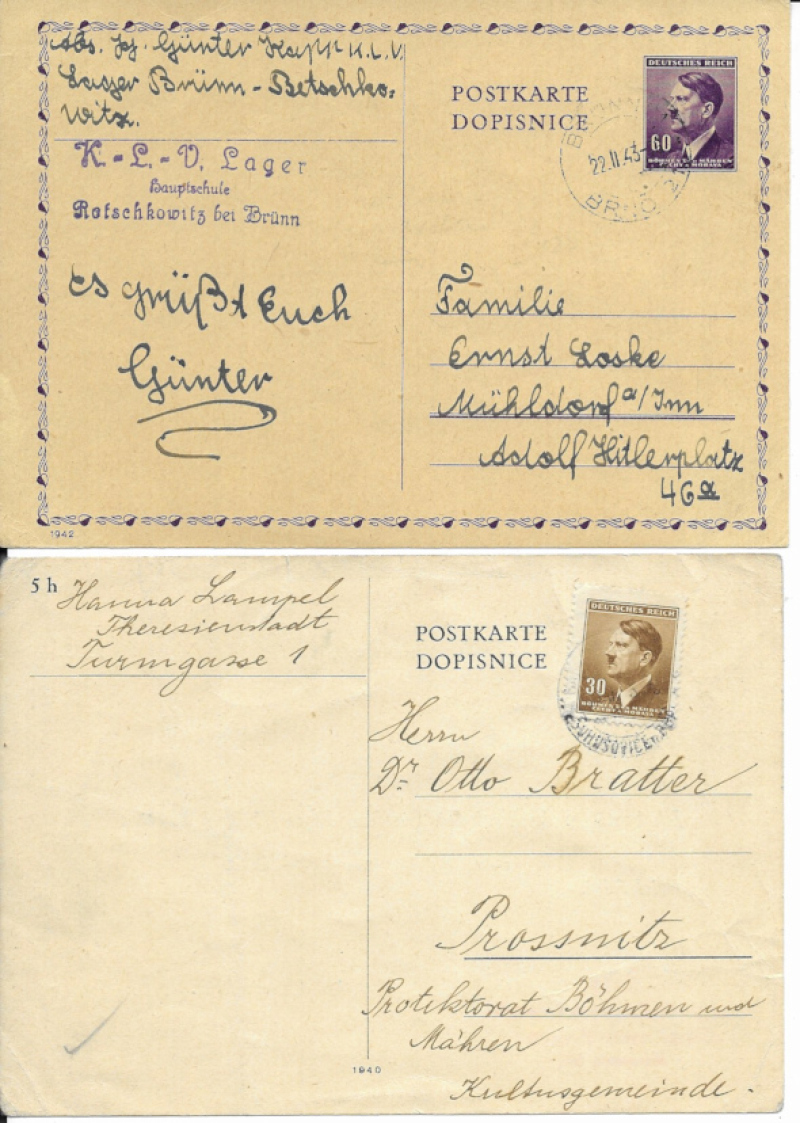 Abs. Jg. Günter Kapp K.L.V.
Lager Brünn - Betschko=
witz.
K. - L. - V. Lager
Hauptschule
Retschkowitz bei Brünn
Es grüßt Euch
Günter
POSTKARTE
DOPISNICE
DEUTSCHES REICH
60
BÖHMEN U. MÄHREN
ČECHY A MORAVA
22.II.43
BRNO 2
Familie
Ernst Loske
Mühldorf a/Inn
Adolf Hitlerplatz
46a
1942
5 h
Hanna Lampel
Theresienstadt
Turmgasse 1
POSTKARTE
DOPISNICE
DEUTSCHES REICH
30
BÖHMEN U. MÄHREN
ČECHY A MORAVA
Herrn
Dr. Otto Bratter
Prossnitz
Protektorat Böhmen und
Mähren
Kultusgemeinde.
1940